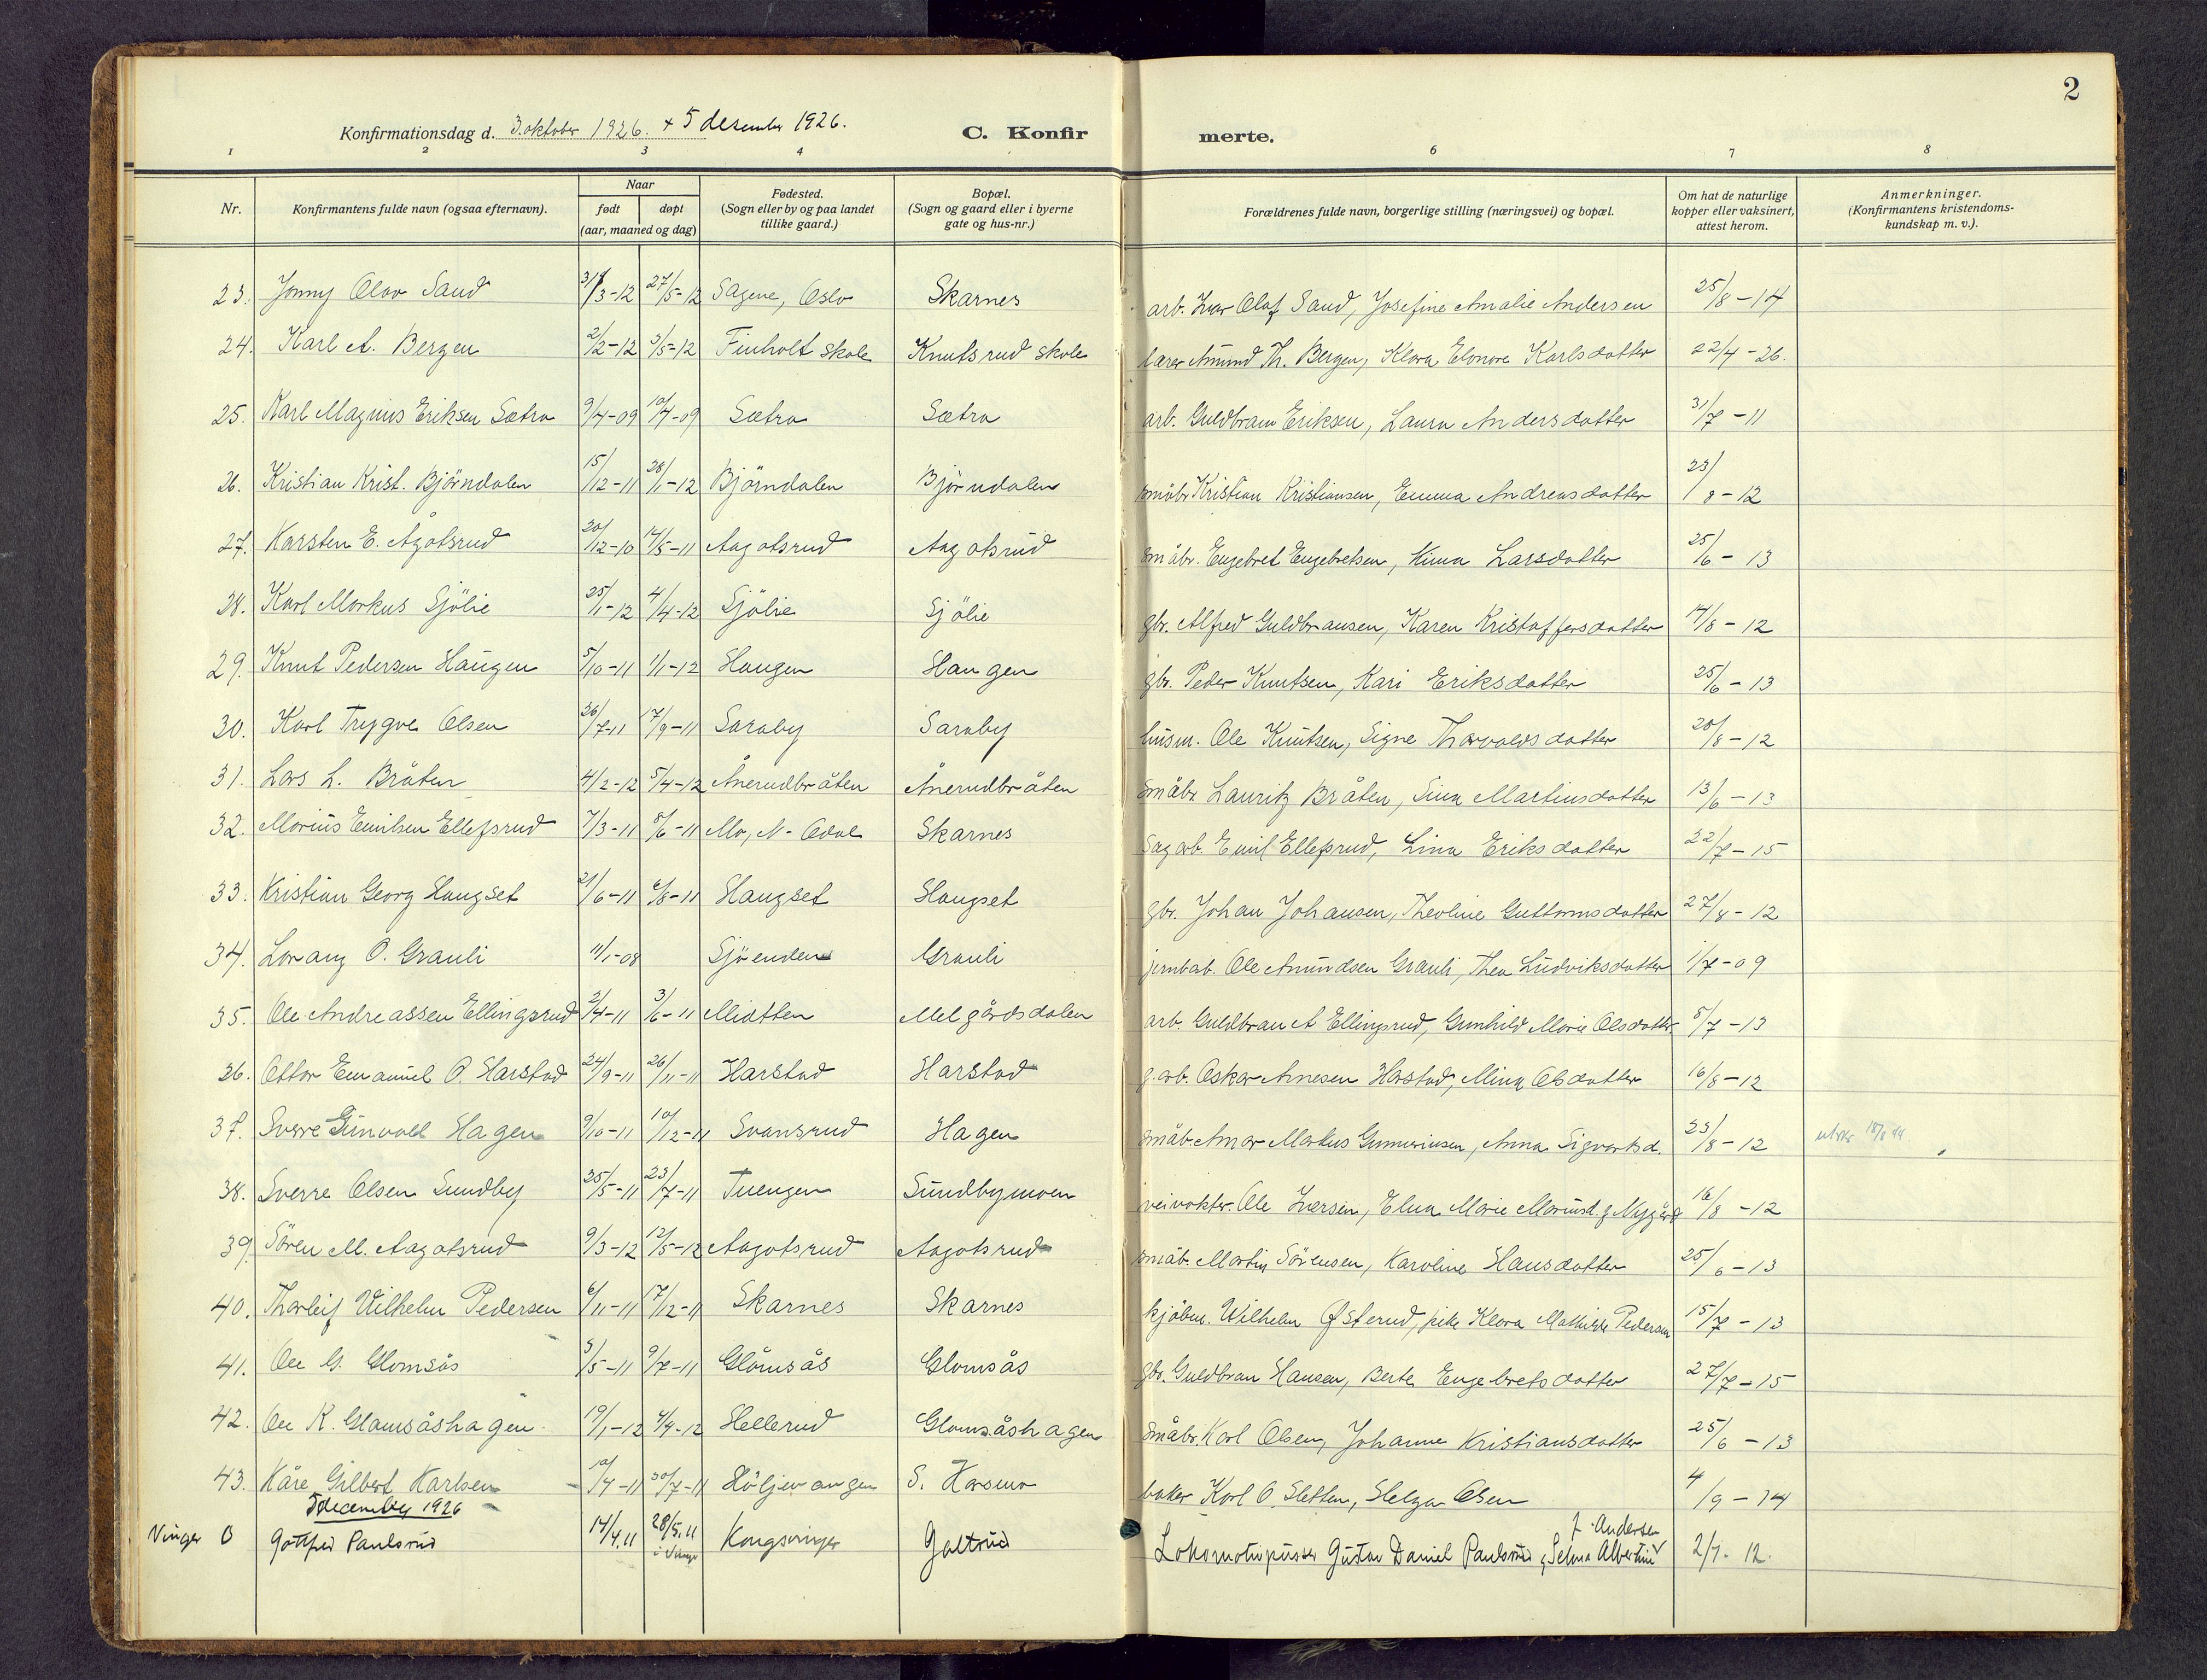 2
Konfirmationsdag d. 3. oktober 1926. + 5 desember 1926. C. Konfir merte.
1 2 3 4 6 7 8
Nr. Konfirmantens fulde navn (ogsaa efternavn). Naar født døpt (aar, maaned og dag) Fødested. (Sogn eller by og paa landet tillike gaard.) Bopæl. (Sogn og gaard eller i byerne gate og hus-nr.) Forældrenes fulde navn, borgerlige stilling (næringsvei) og bopæl. Om hat de naturlige kopper eller vaksinert, attest herom. Anmerkninger. (Konfirmantens kristendoms-kundskap m. v.).
23. Jonny Olav Sand 31/3-12 27/5-12 Sagene, Oslo Skarnes arb. Ivar Olaf Sand, Josefine Amalie Andersen 25/8-14
24. Karl A. Bergen 2/2-12 3/5-12 Finholt skole Knutsrud skole lærer Amund Th. Bergen, Klara Elonore Karlsdatter 22/4-26.
25. Karl Magnus Eriksen Sætra 9/4-09 10/4-09 Sætra Sætra arb. Guldbram Eriksen, Laura Andersdatter 31/7-11
26. Kristian Krist. Björndalen 15/12-11 28/1-12 Björndalen Björndalen småbr. Kristian Kristiansen, Emma Andreasdatter 23/8-12
27. Karsten E. Agotsrud 20/12-10 14/5-11 Aagotsrud Aagotsrud småbr. Engebret Engebretsen, Mina Larsdatter 25/6-13
28. Karl Markus Sjölie 25/1-12 4/4-12 Sjölie Sjölie gbr. Alfred Guldbransen, Karen Kristoffersdatter 17/8-12
29. Knut Pedersen Haugen 5/10-11 1/1-12 Haugen Haugen gbr. Peder Knutsen, Kari Eriksdatter 25/6-13
30. Karl Trygve Olsen 26/7-11 17/9-11 Saraby Saraby husm. Ole Knutsen, Signe Thorvaldsdatter 20/8-12
31. Lars L. Bråten 4/2-12 5/4-12 Ånerudbråten Ånerudbråten småbr. Lauritz Bråten, Sina Martinsdatter 13/6-13
32. Marius Emilsen Ellefsrud 7/3-11 5/6-11 Mo, N-Odal Skarnes sagarb. Emil Ellefsrud, Lina Eriksdatter 22/7-15
33. Kristian Georg Haugset 21/6-11 6/8-11 Haugset Haugset gbr. Johan Johansen, Theoline Guttormsdatter 27/8-12
34. Lorang O. Grauli 11/1-08 Sjöenden Grauli jernbab. Ole Amundsen Grauli, Thea Ludviksdatter 1/7-09
35. Ole Andreassen Ellingsrud 2/4-11 3/6-11 Midtten Melgårdsdalen arb. Guldbran A Ellingsrud, Gunhild Marie Olsdatter 5/7-13
36. Ottar Emanuel O. Harstad 24/9-11 26/11-11 Harstad Harstad g.arb. Oskar Arnesen Harstad, Mina Olsdatter 16/8-12
37. Sverre Gunvald Hagen 9/10-11 10/12-11 Svansrud Hagen småb. Amar Markus Gunneriusen, Anna Sigvartsd. 23/8-12
38. Sverre Olsen Sundby 25/5-11 23/7-11 Tuengen Sundbymoen veivokter Ole Iversen, Elna Marie Mariusd. f. Nygård 16/8-12
39. Sören M. Aagotsrud 9/3-12 12/5-12 Aagotsrud Aagotsrud småb. Martin Sörensen, Karoline Hansdatter 25/6-13
40. Thorleif Vilhelm Pedersen 6/11-11 17/12-11 Skarnes Skarnes kjöbm. Vilhelm Østerud, pike Klara Mathilde Pedersen 15/7-13
41. Ole G. Glomsås 3/5-11 9/7-11 Glomsås Glomsås gbr. Guldbran Hansen, Berte Engebretsdatter 27/7-15
42. Ole K. Glomsåshagen 19/1-12 4/4-12 Hellerud Glomsåshagen småbr. Karl Olsen, Johanne Kristiansdatter 25/6-13
43. Kåre Gilbert Karlsen 10/4-11 30/7-11 Höljevangen S. Korsmo baker Karl O. Sletten, Helga Olsen 4/9-14
5 december 1926
Vinger 0 Gottfred Paulsrud 14/4.11 28/5.11 i Vinger Kongsvinger Galtrud Lokomotivpusser Gustav Daniel Paulsrud & Selma Albertine f. Andersen 2/7-12.